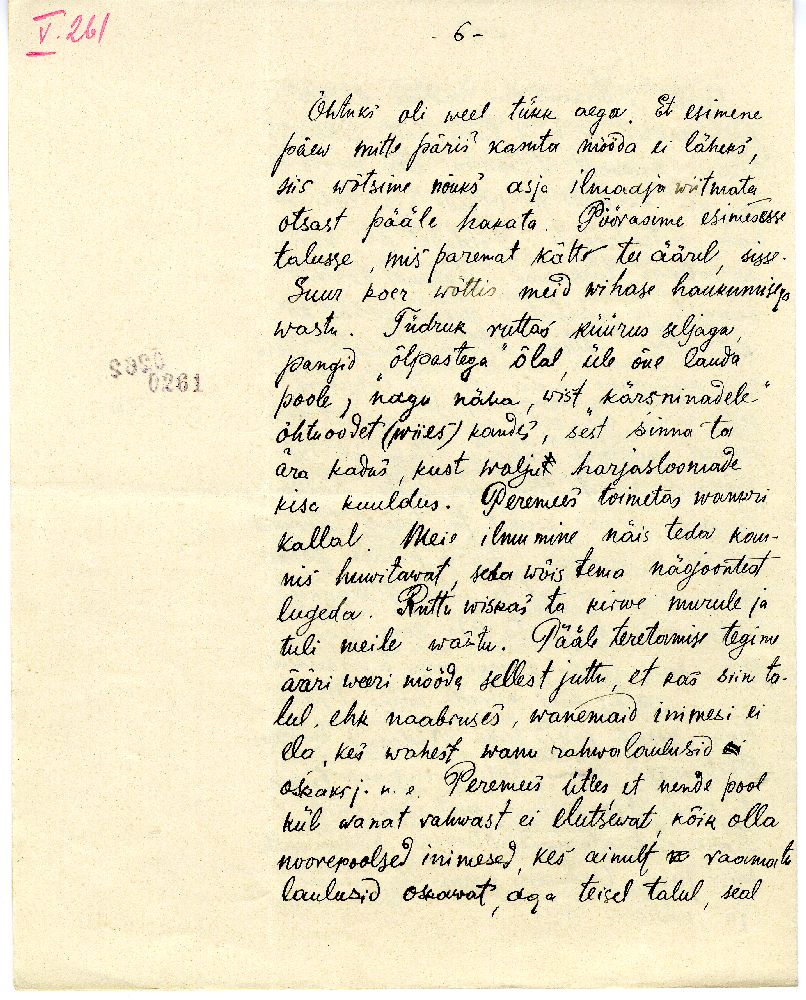 V.261
- 6 -
Õhtuks oli weel tükk aega. Et esimene
päew mitte päris kasuta mööda ei läheks,
siis wõtsime nõuks asja ilmaaja wiitmata
otsast pääle hakata. Pöörasime esimesesse
talusse, mis paremat kätt tee äärel, sisse.
Suur koer wõttis meid wihase haukumisega
wastu. Tüdruk ruttas küürus seljaga,
pangid "õlpastega" õlal, üle õue lauda
poole, nagu näha, wist "kärsninadele"
õhtuoodet (wiies) kandes, sest sinna ta
ära kadus, kust waljut harjasloomade
kisa kuuldus. Peremees toimetas wankri
kallal. Meie ilmumine näis teda kau-
nis huwitawat, seda wõis tema näojoontest
lugeda. Ruttu wiskas ta kirwe murule ja
tuli meile wastu. Pääle teretamise tegime
ääri weeri mööda sellest juttu, et kas siin ta-
lul, ehk naabruses, wanemaid inimesi ei
ela, kes wahest wanu rahwalaulusid
oskaks j. n. e. Peremees ütles et nende pool
küll wanat rahwast ei elutsewat, kõik olla
noorepoolsed inimesed, kes ainult raamatu
laulusid oskawat, aga teisel talul, seal
0261